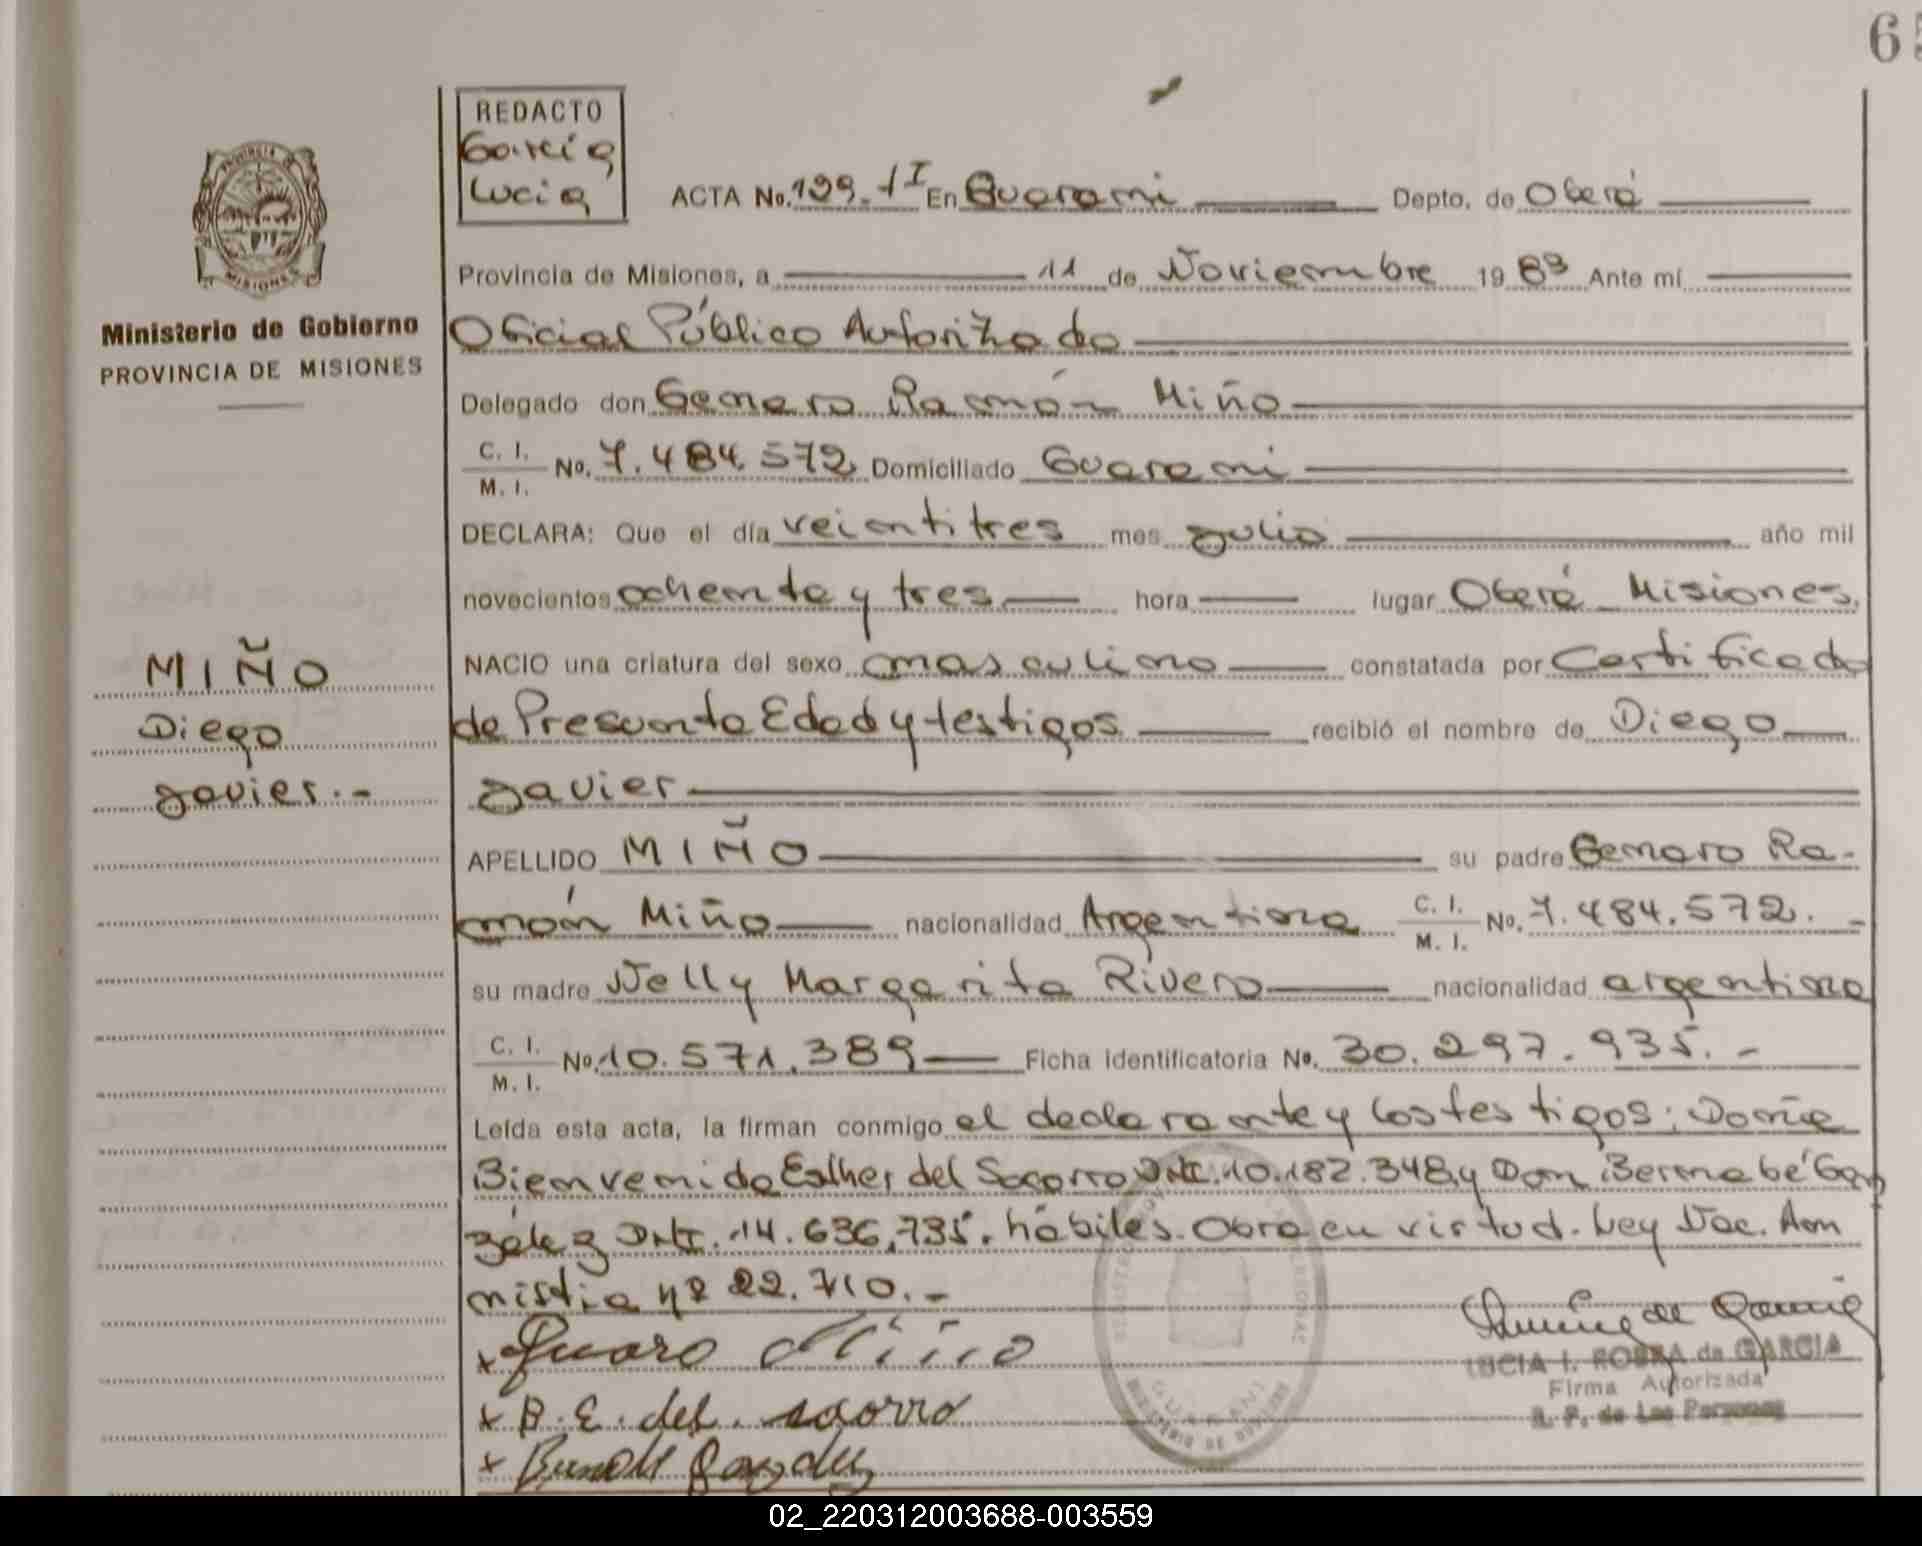 6
REDACTO
Garcia
Lucia
ACTA No. 199. tI En Guarani Depto. de Oberá
Provincia de Misiones, a 11 de Noviembre 1983 Ante mí
Ministerio de Gobierno
PROVINCIA DE MISIONES
Oficial Público Autorizado
Delegado don Genaro Ramón Miño
C. I.
M. I. No. 7.484.572 Domiciliado Guarani
DECLARA: Que el día veientitres mes Julio año mil
novecientos ochenta y tres hora lugar Oberá Misiones.
MIÑO
Diego
Javier.-
NACIO una criatura del sexo masculino constatada por Certificado
de Presunta Edad y testigos recibió el nombre de Diego
Javier
APELLIDO MIÑO su padre Genaro Ra-
món Miño nacionalidad Argentina C. I.
M. I. No. 7.484.572.-
su madre Nelly Margarita Rivero nacionalidad argentina
C. I.
M. I. No. 10.571.389 Ficha identificatoria No. 30.297.935.-
Leída esta acta, la firman conmigo el declarante y los testigos: Doña
Bienvenida Esther del Socorro DNI. 10.182.348, y Don Bernabé Gon
zález DNI. 14.636,735. hábiles. Obra en virtud. Ley Nac. Am
nistia nº 22.710.-
x Genaro Miño
x B. E. del socorro
x Bernabé González
LUCIA I. de GARCIA
Firma Autorizada
R. P. de Las Personas
GUARANI
02_220312003688-003559